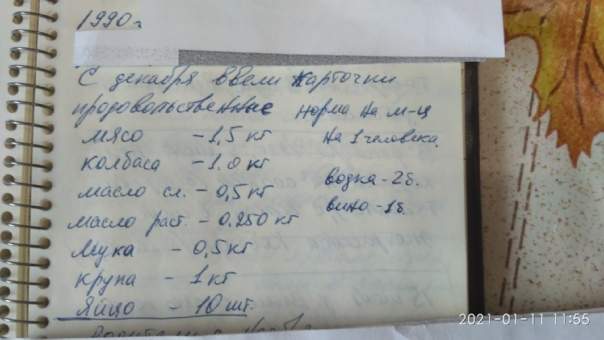 1990г
С декабря ввели карточки
продовольственные норма на м-ц
мясо - 1,5 кг на 1 человека.
колбаса - 1.0 кг
масло сл. - 0,5 кг водка - 2б.
масло раст. - 0,250 кг вино - 1б.
мука - 0,5 кг
крупа - 1 кг
яйцо - 10 шт.
2021-01-11 11:55